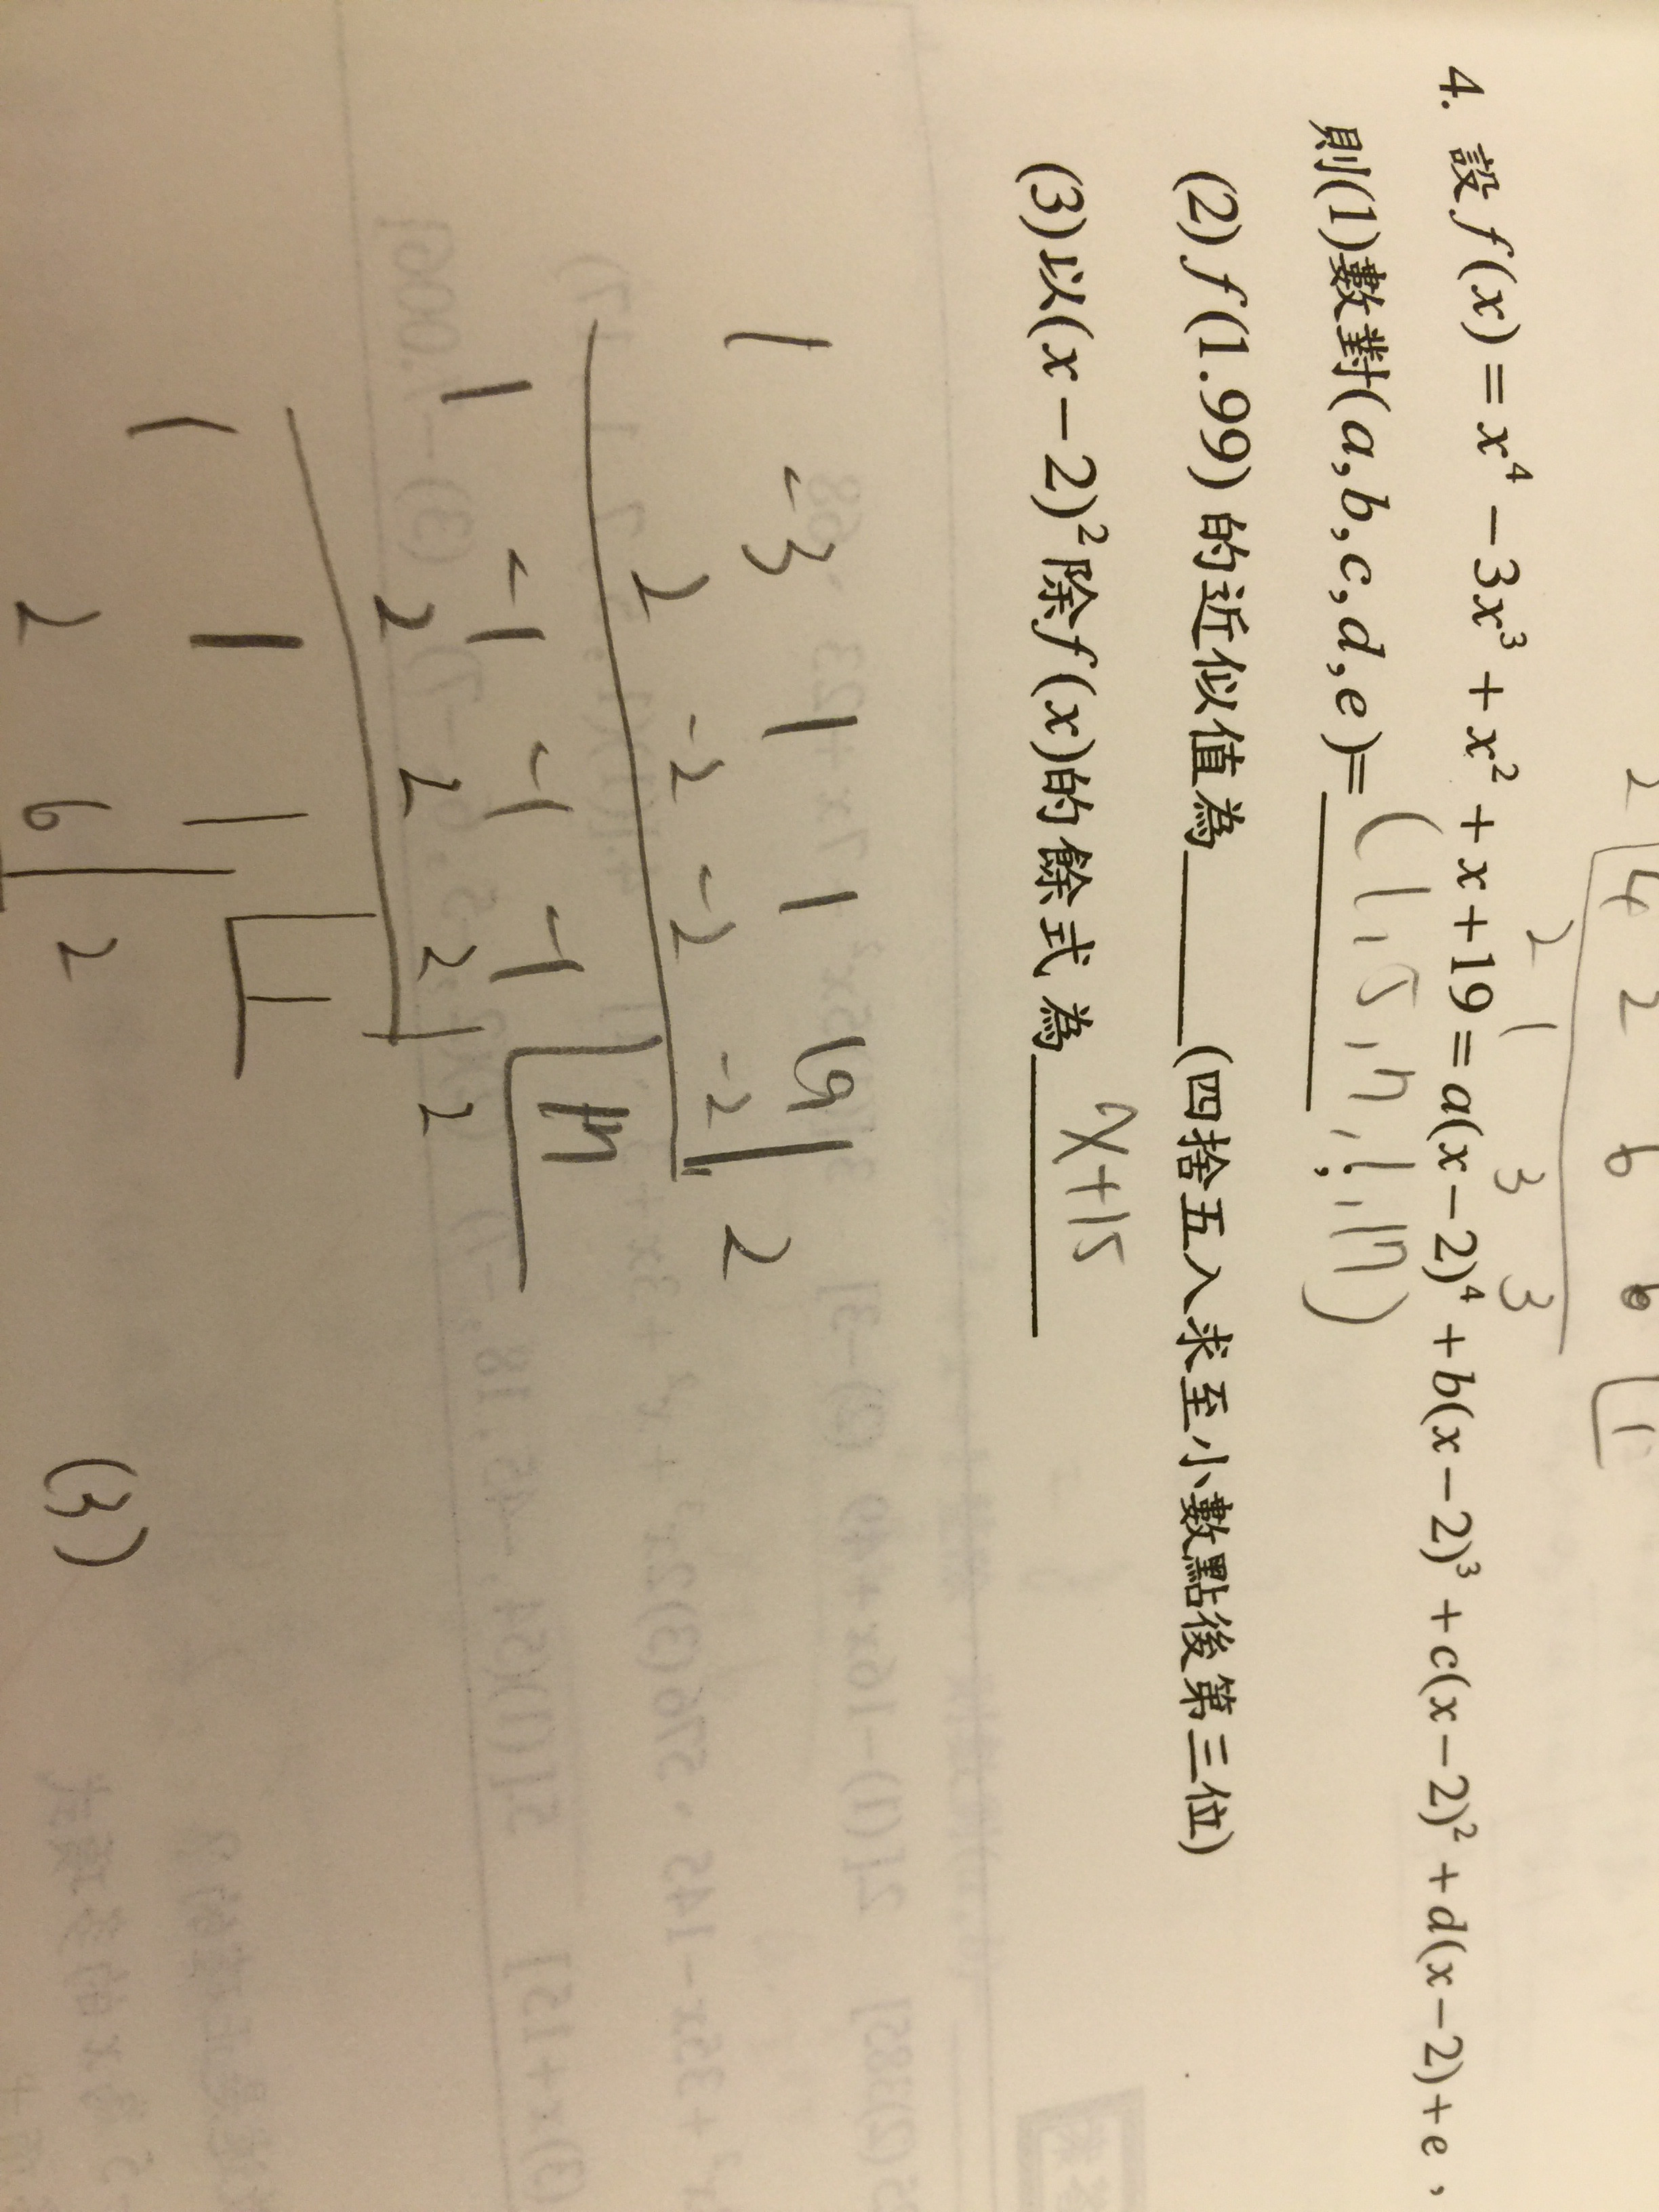 2 4 2 6 6
2 1 3 3 1
4. 設 f(x)=x⁴−3x³+x²+x+19=a(x−2)⁴+b(x−2)³+c(x−2)²+d(x−2)+e,
則(1)數對(a,b,c,d,e)=(1,5,7,1,17)
(2) f(1.99) 的近似值為______(四捨五入求至小數點後第三位)
(3)以(x−2)²除f(x)的餘式為 x+15
1 -3 1 1 19 2
2 -2 -2 -2
1 -1 -1 -1 17
2 2 2 2
1 1 1 1
2 6 2
(3)